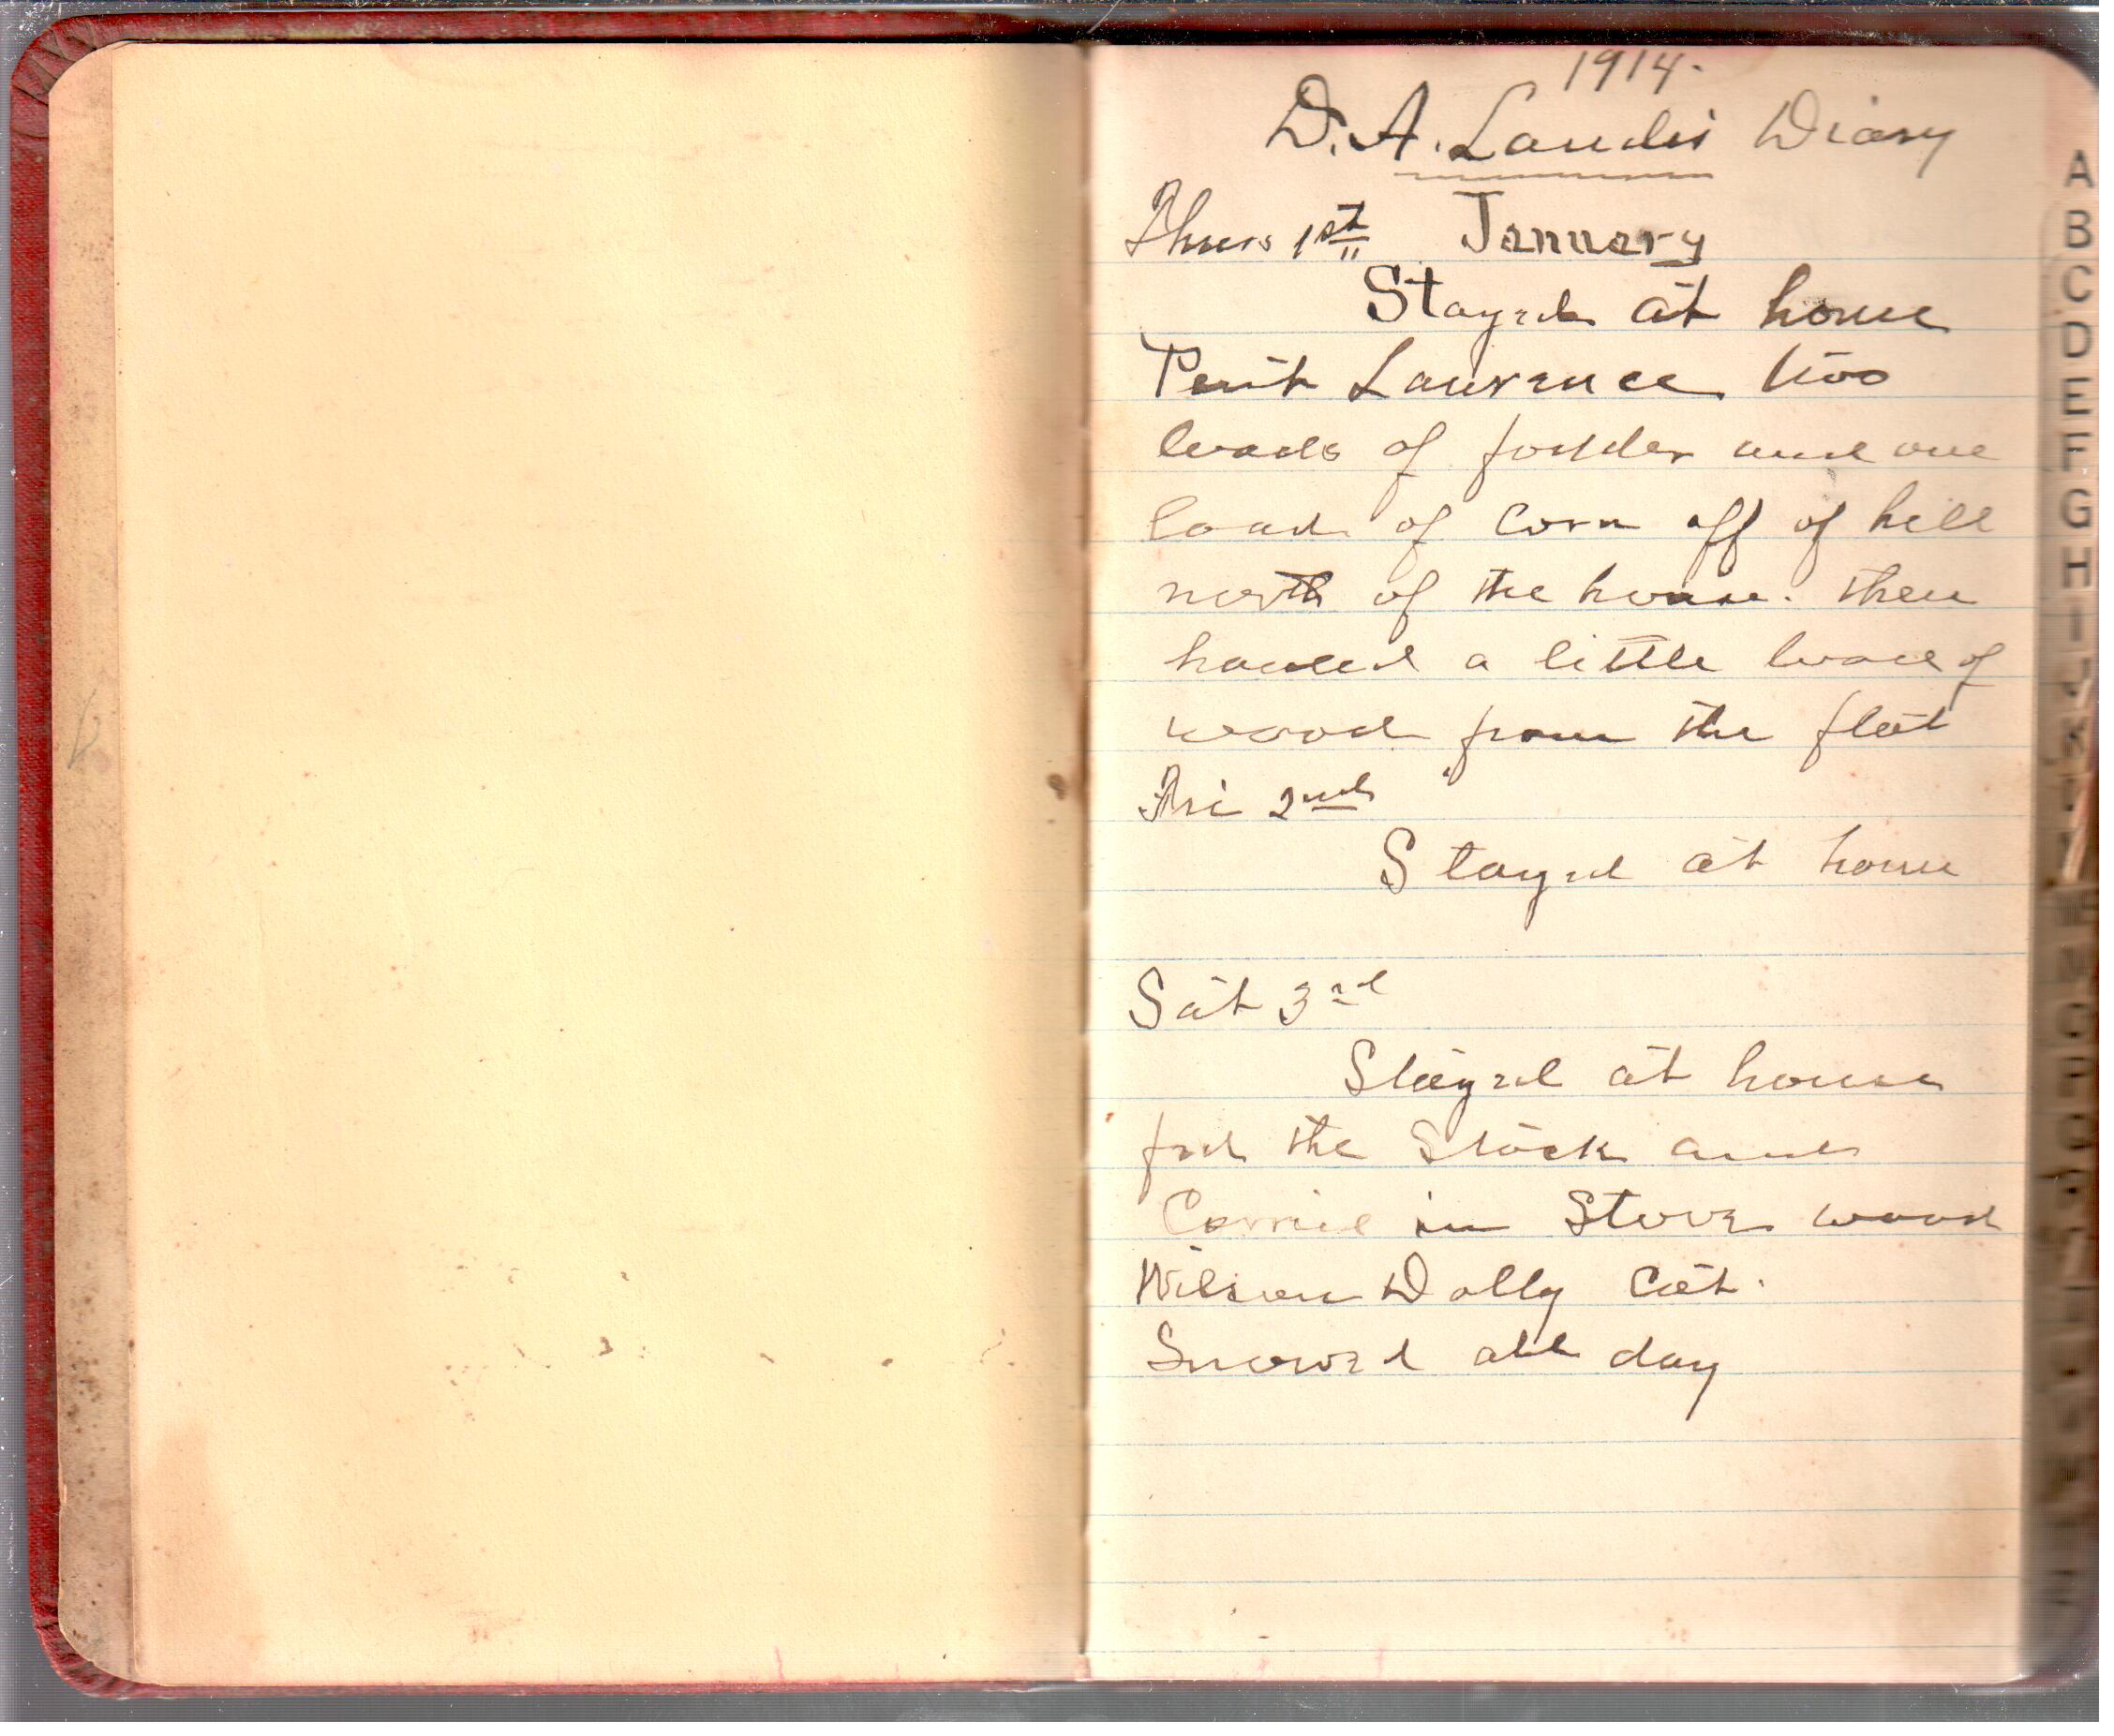 1914.
D. A. Landis Diary
Thurs 1st January
Stayed at home
Lawrence two
loads of fodder and one
load of corn off of hill
north of the house. then
hauled a little load of
wood from the flat
Fri 2nd
Stayed at home
Sat 3rd
Stayed at house
fed the Stock and
Carried in Stove wood
Wilson Dolly Cat.
Snowed all day
A
B
C
D
E
F
G
H
I
J
K